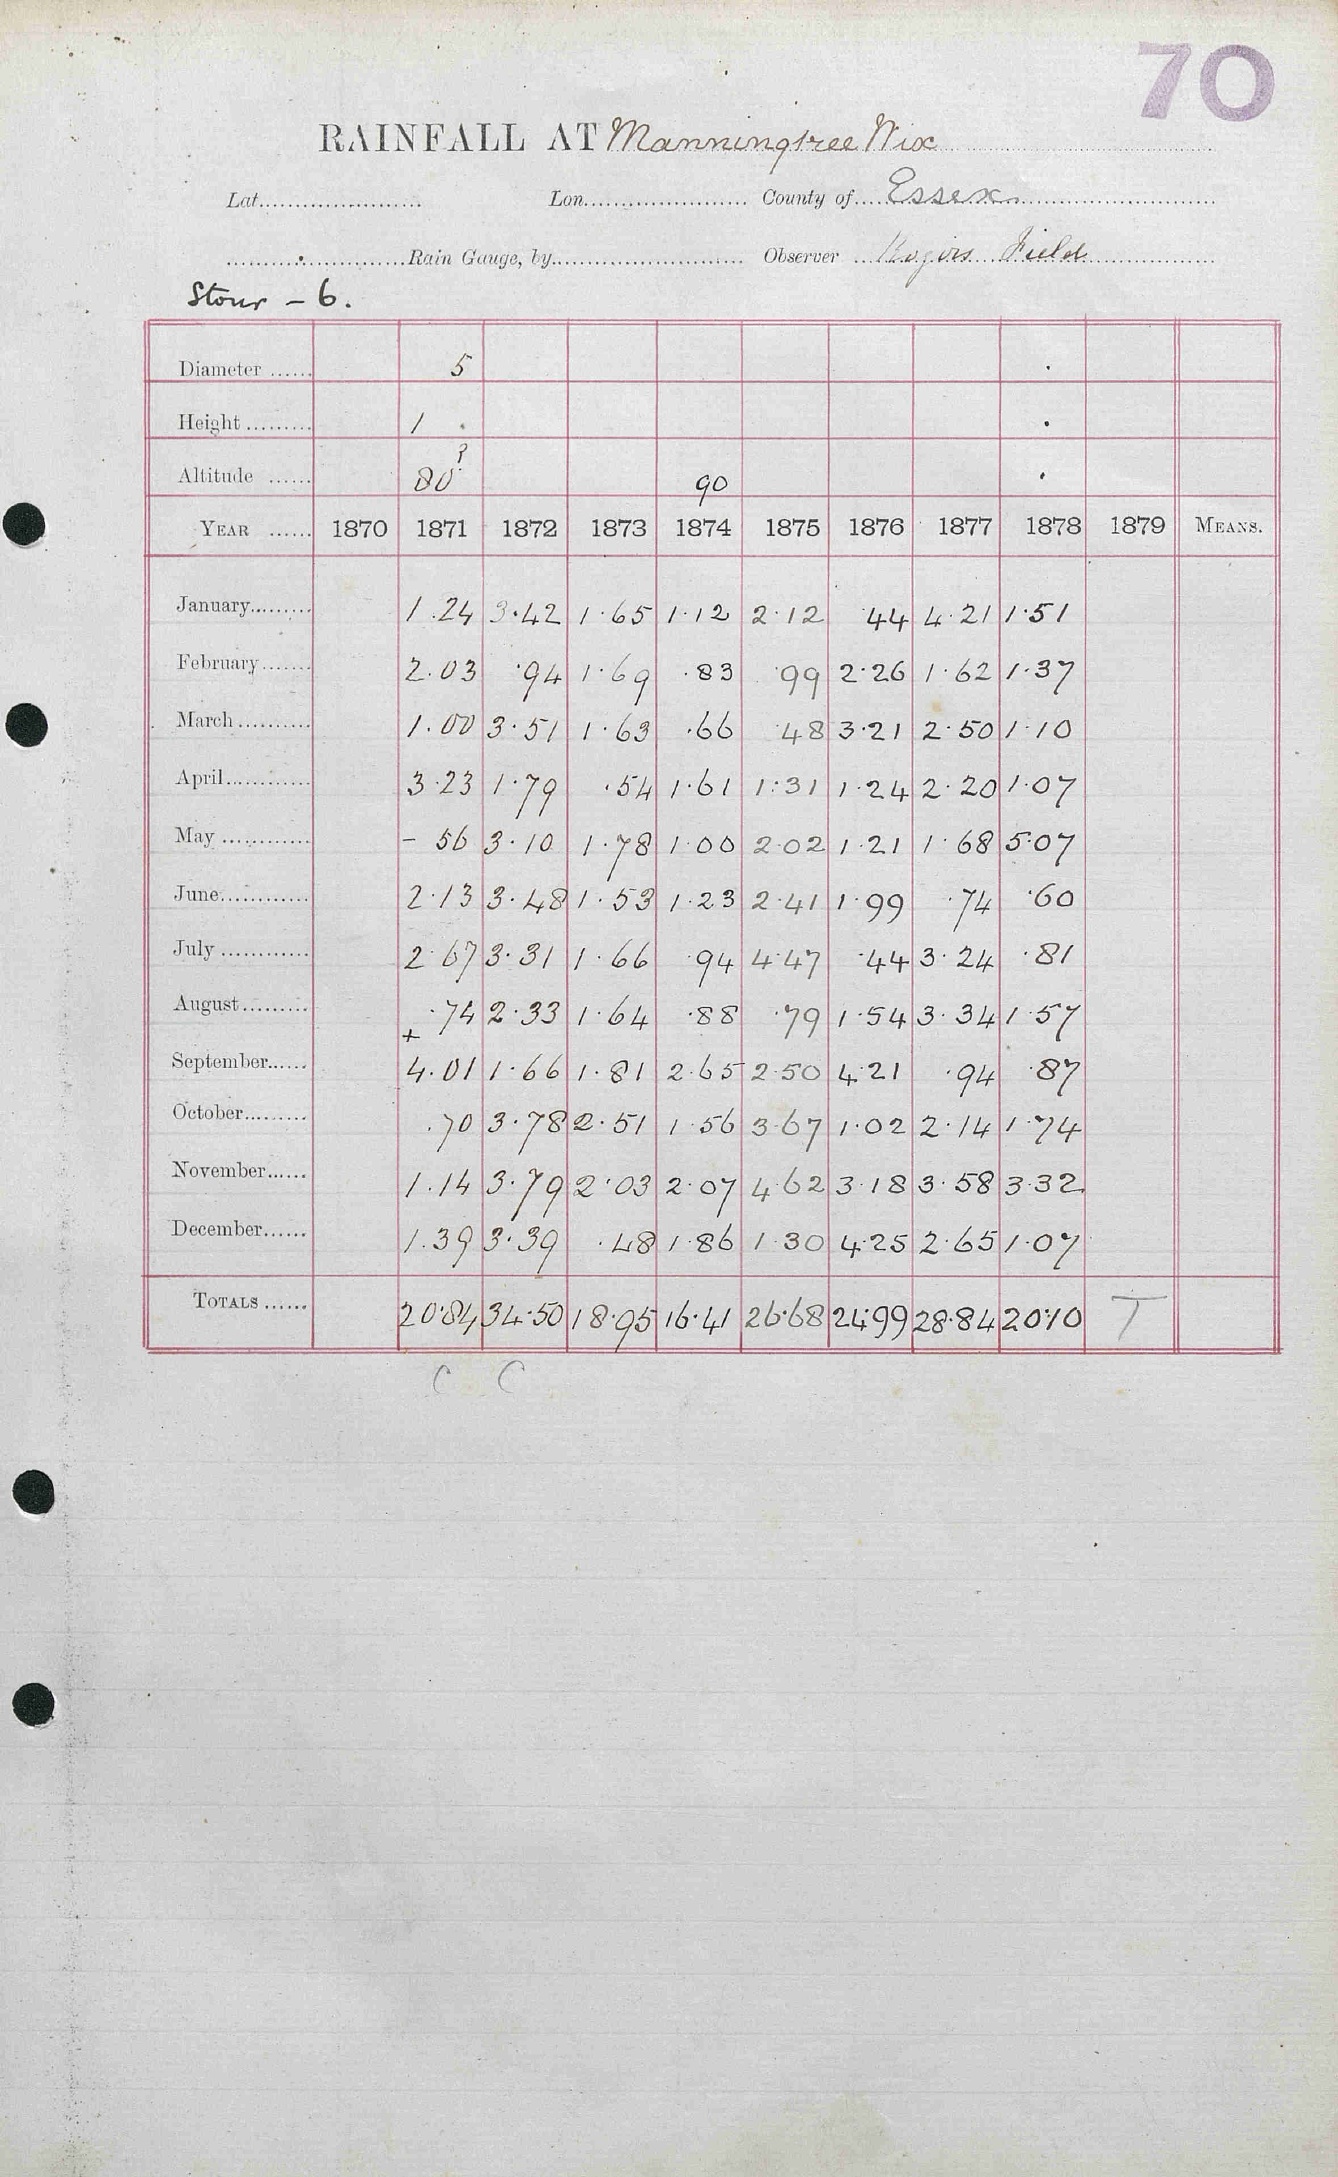 70
RAINFALL AT Manningtree Wix
Lat. Lon. County of Essex
Rain Gauge, by Observer Rogers Field
Stour - 6.
Diameter 5
Height 1
Altitude 80? 90
YEAR 1870 1871 1872 1873 1874 1875 1876 1877 1878 1879 MEANS.
January 1.24 3.42 1.65 1.12 2.12 .44 4.21 1.51
February 2.03 .94 1.69 .83 .99 2.26 1.62 1.37
March 1.00 3.51 1.63 .66 .48 3.21 2.50 1.10
April 3.23 1.79 .54 1.61 1.31 1.24 2.20 1.07
May - 56 3.10 1.78 1.00 2.02 1.21 1.68 5.07
June 2.13 3.48 1.53 1.23 2.41 1.99 .74 .60
July 2.67 3.31 1.66 .94 4.47 .44 3.24 .81
August + .74 2.33 1.64 .88 .79 1.54 3.34 1.57
September 4.01 1.66 1.81 2.65 2.50 4.21 .94 .87
October .70 3.78 2.51 1.56 3.67 1.02 2.14 1.74
November 1.14 3.79 2.03 2.07 4.62 3.18 3.58 3.32
December 1.39 3.39 .48 1.86 1.30 4.25 2.65 1.07
TOTALS 20.84 34.50 18.95 16.41 26.68 24.99 28.84 20.10 T
C C